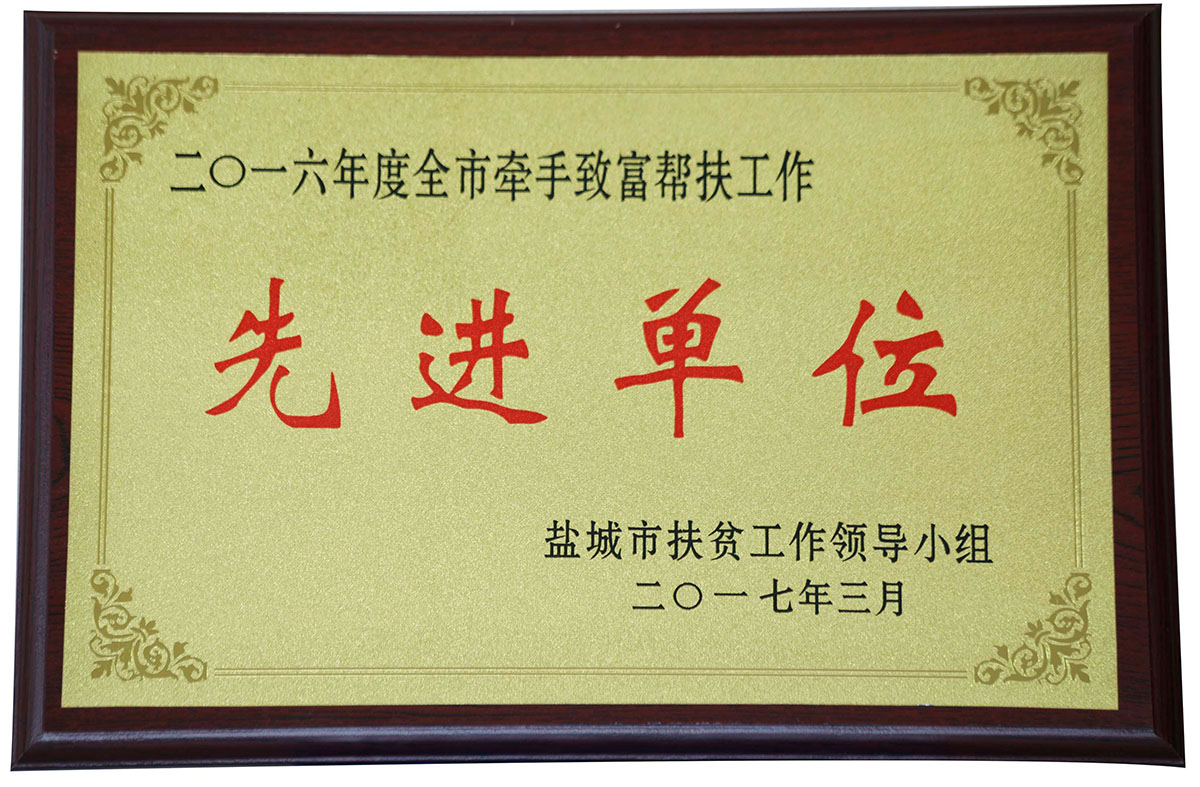 二〇一六年度全市牵手致富帮扶工作
先进单位
盐城市扶贫工作领导小组
二〇一七年三月